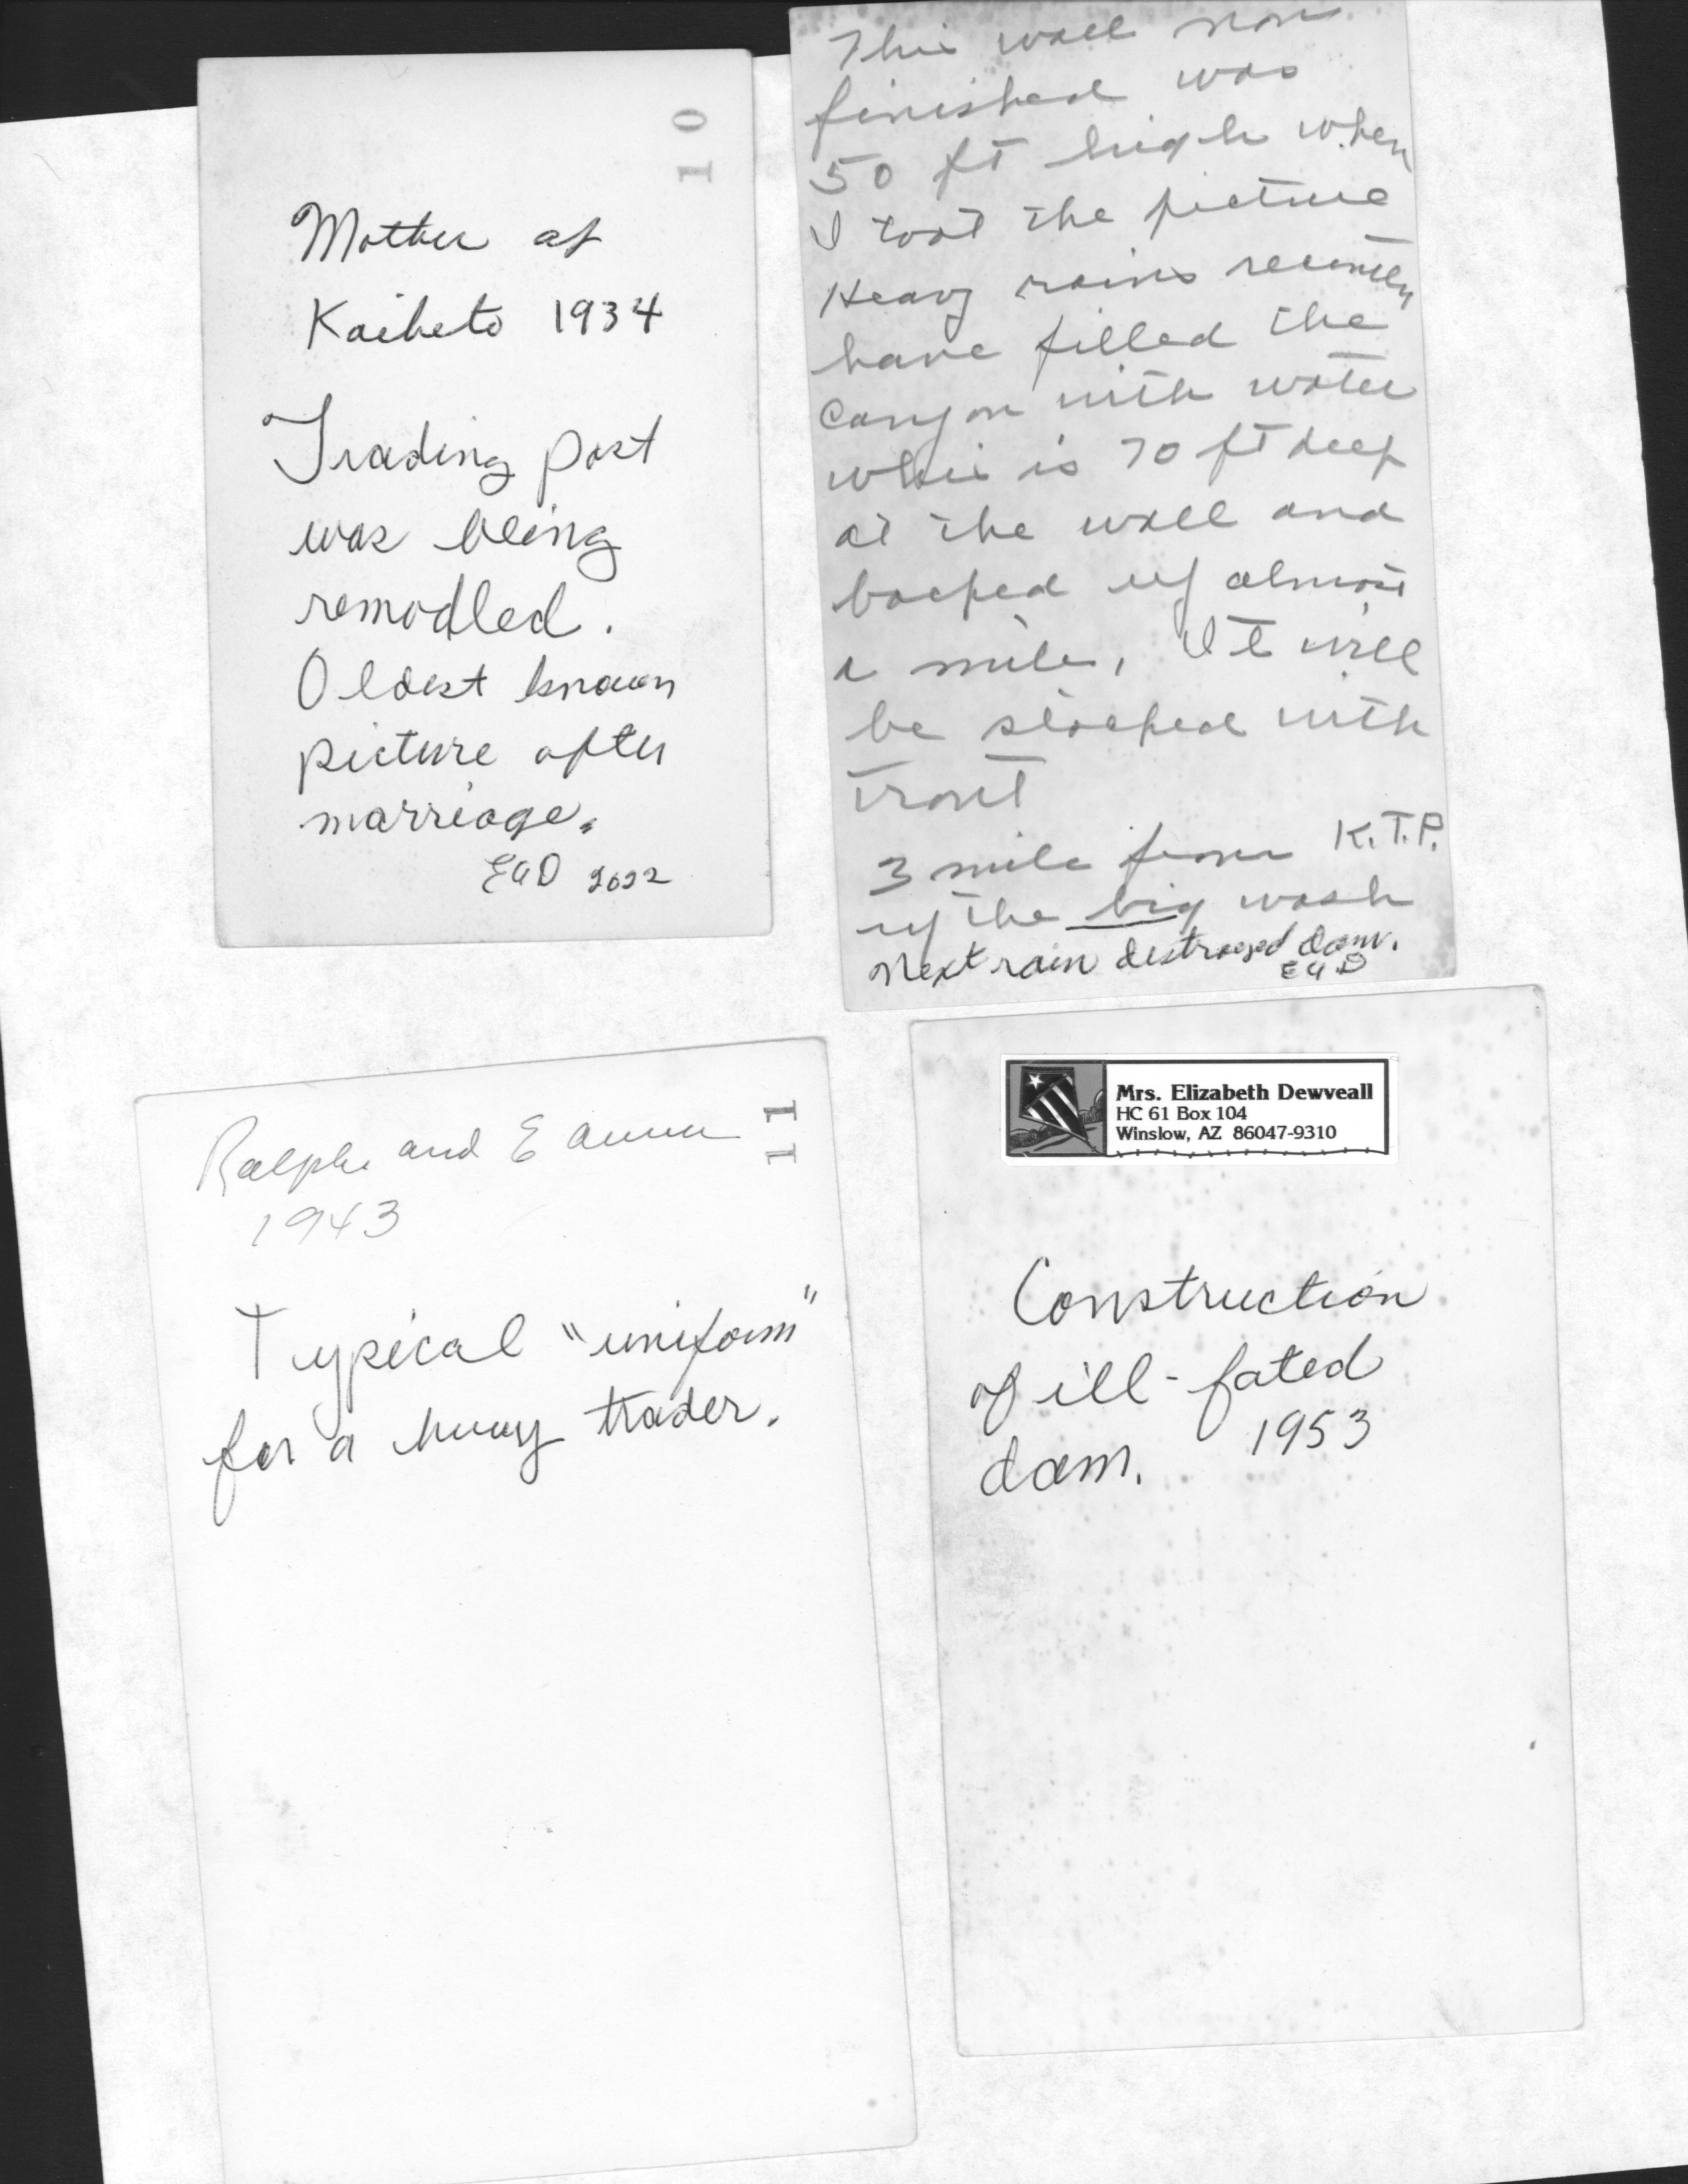 10
Mother at
Kaibeto 1934
Trading post
was being
remodled.
Oldest known
picture after
marriage.
EGD 2022
This wall now
finished was
50 ft high when
I took the picture
Heavy rains recently
have filled the
Canyon with water
is 70 ft deep
at the wall and
backed up almost
a mile, It will
be stocked with
trout
3 mile from K.T.P.
up the big wash
Next rain destroyed dam.
EGD
11
Ralph and
1943
Typical "uniform"
for a busy trader.
Mrs. Elizabeth Dewveall
HC 61 Box 104
Winslow, AZ 86047-9310
Construction
of ill-fated
dam. 1953